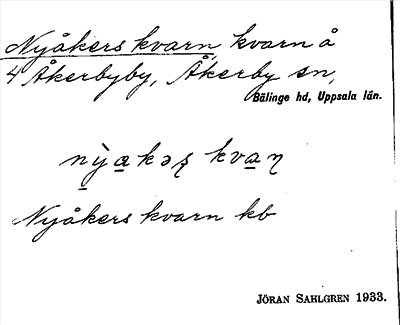 Nyåkers kvarn, kvarn å
4 Åkerbyby, Åkerby sn,
Bälinge hd, Uppsala län.
nỳa̲kəʂ kva̲ɳ
Nyåkers kvarn kb
JÖRAN SAHLGREN 1933.